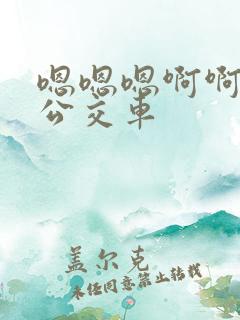 嗯嗯嗯啊啊
公交车
盖尔克
未经同意禁止转载